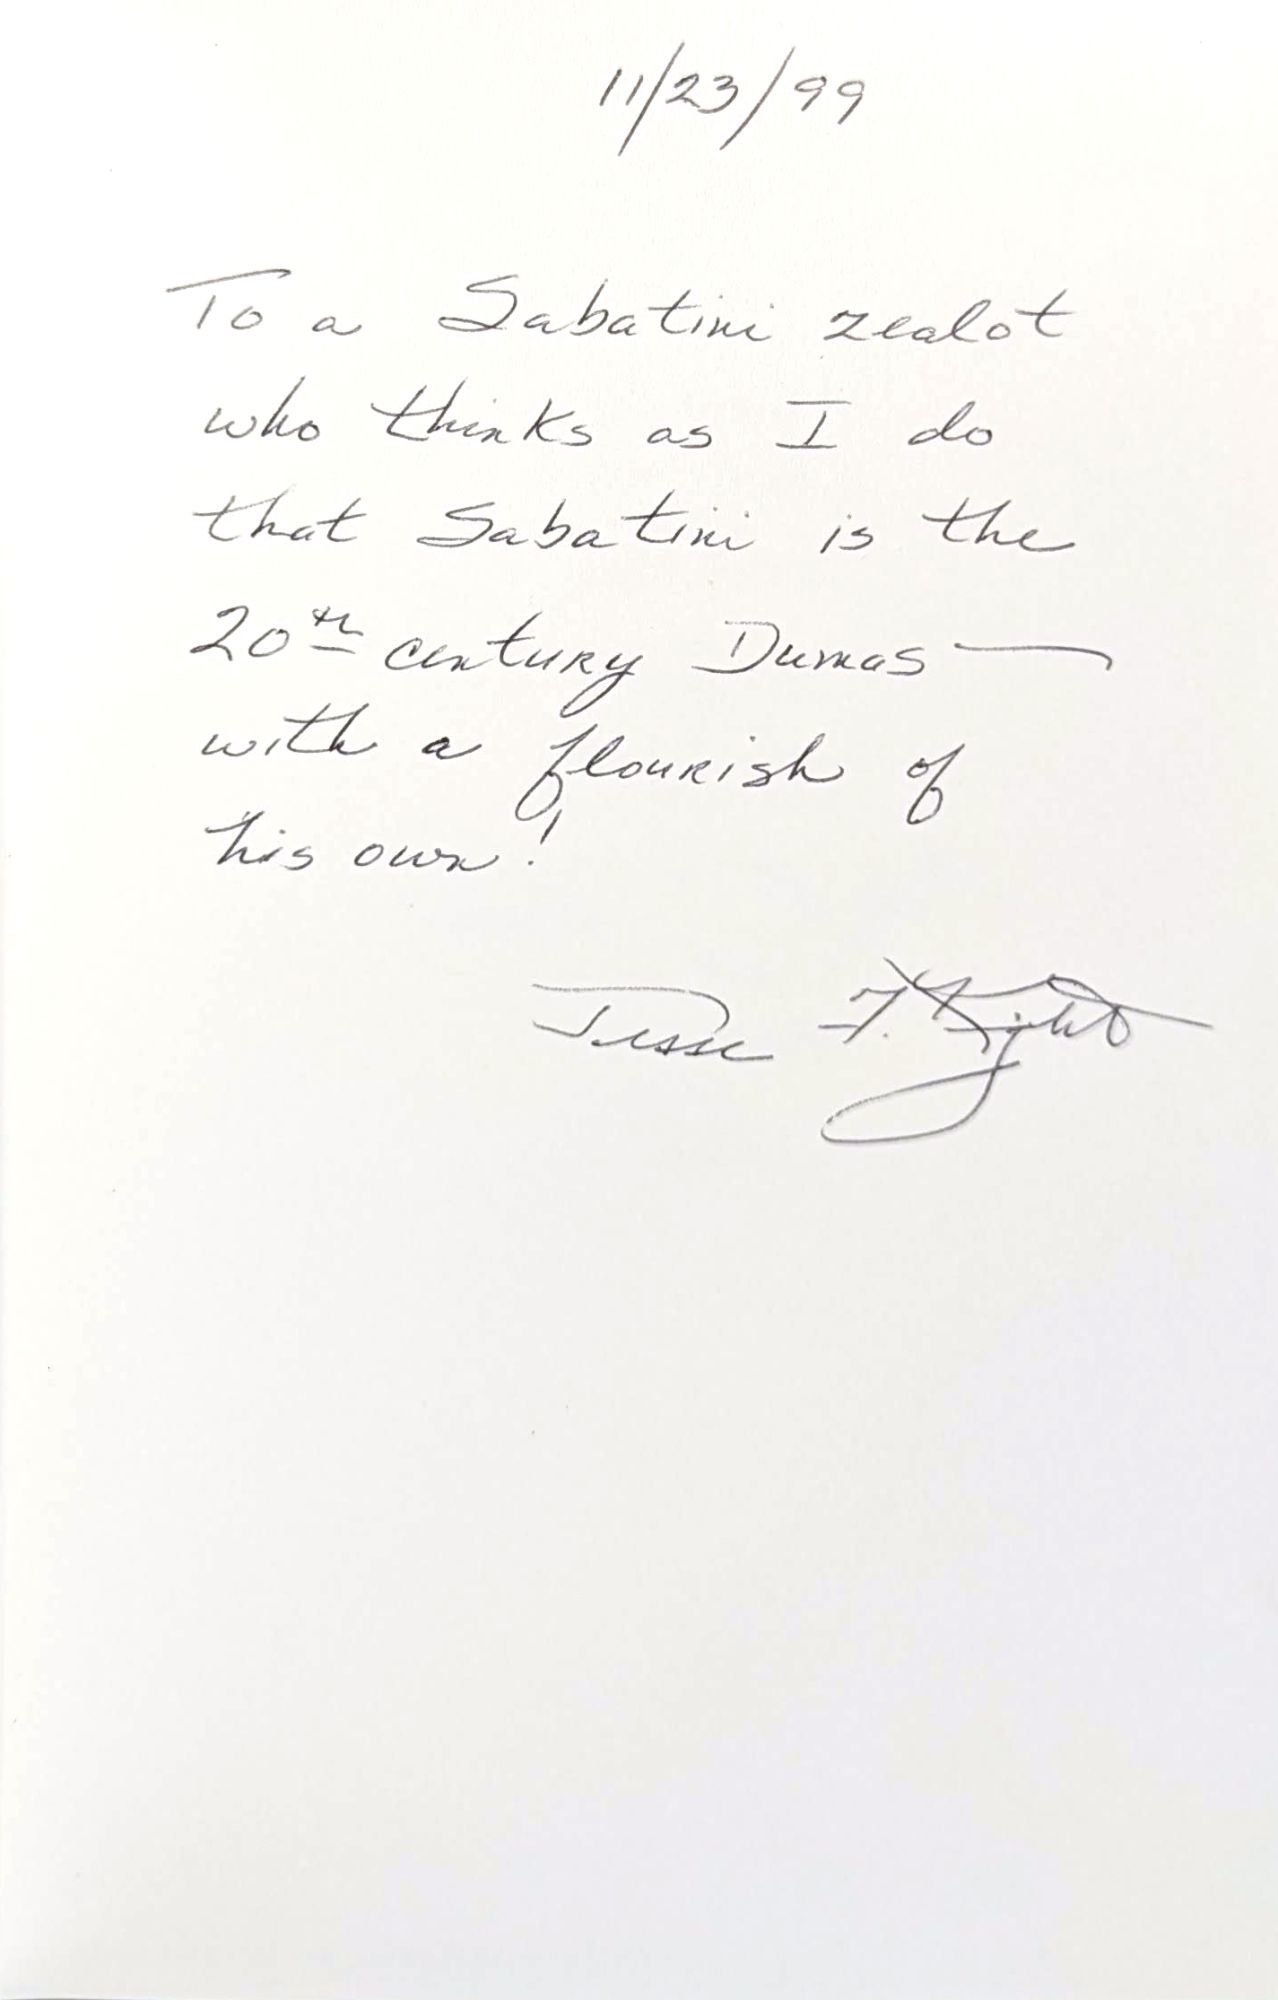 11/23/99
To a Sabatini zealot
who thinks as I do
that Sabatini is the
20th century Dumas —
with a flourish of
his own!
Jesse F. Knight